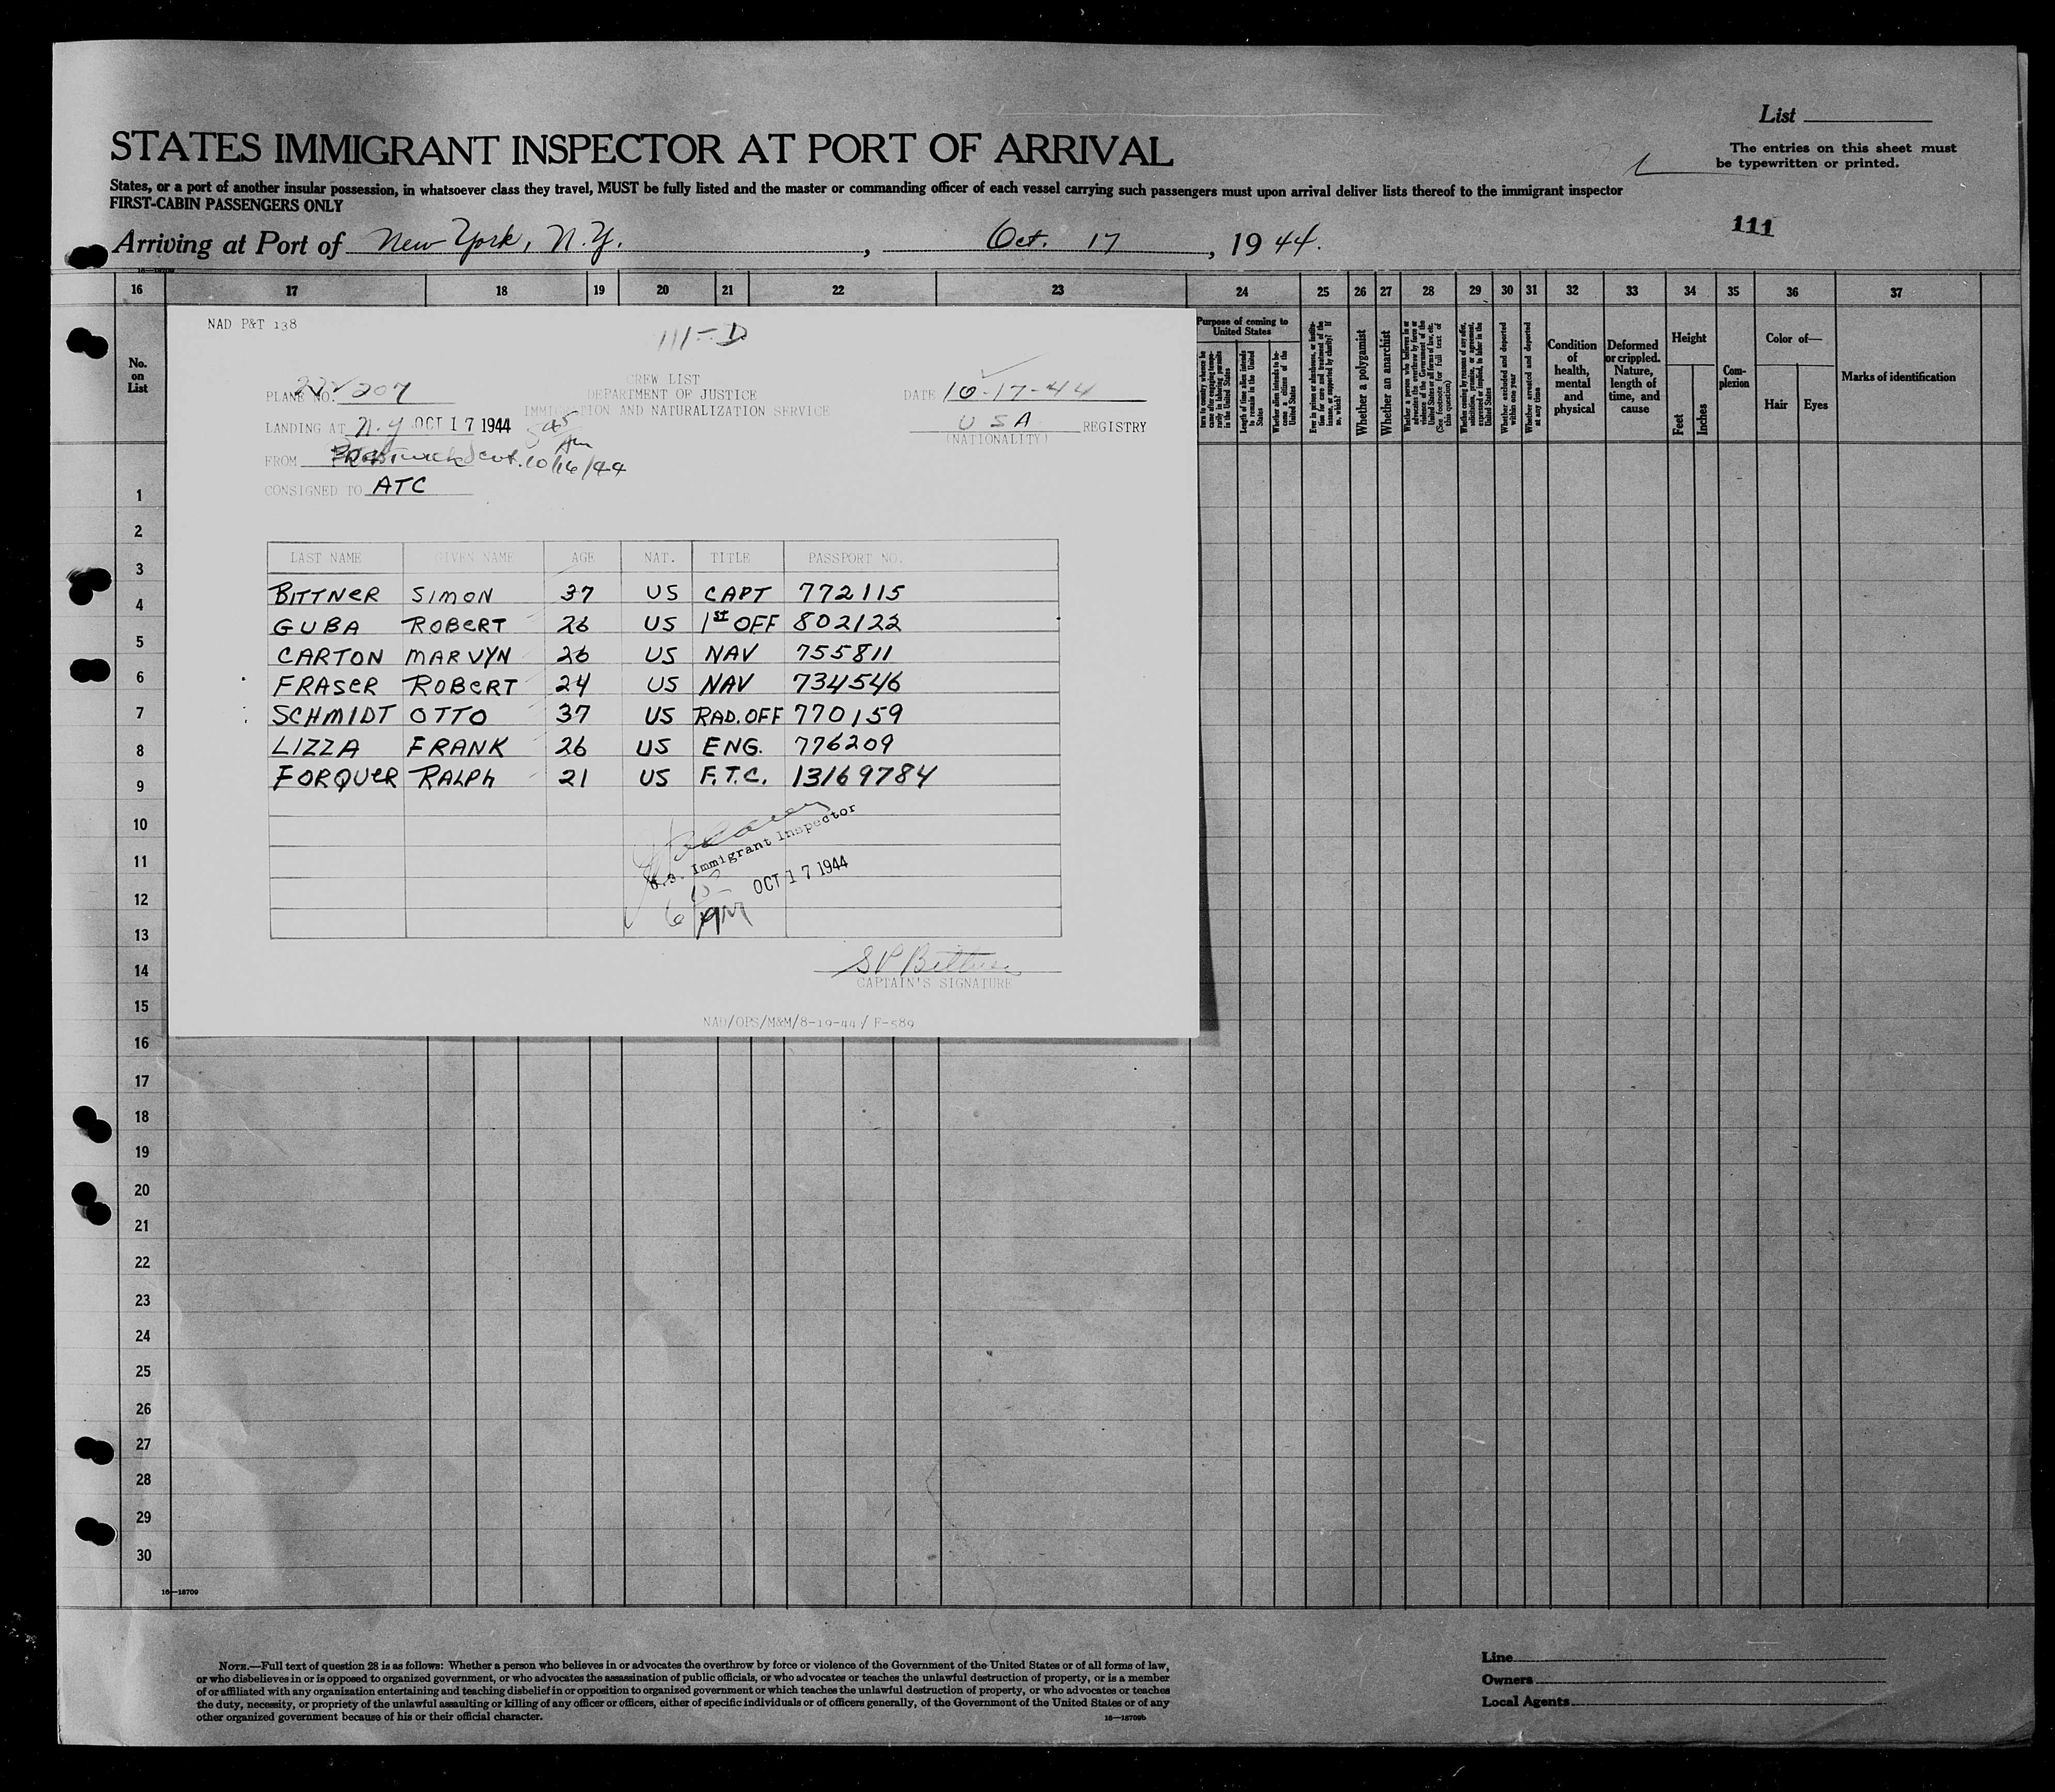 List
STATES IMMIGRANT INSPECTOR AT PORT OF ARRIVAL
The entries on this sheet must
be typewritten or printed.
States, or a port of another insular possession, in whatsoever class they travel, MUST be fully listed and the master or commanding officer of each vessel carrying such passengers must upon arrival deliver lists thereof to the immigrant inspector
FIRST-CABIN PASSENGERS ONLY
111
Arriving at Port of New York, N.Y. , Oct. 17 , 19 44.
16—18709
16 17 18 19 20 21 22 23 24 25 26 27 28 29 30 31 32 33 34 35 36 37
No. on List
Purpose of coming to United States
Whether a polygamist
Whether an anarchist
Whether excluded and deported within one year
Whether arrested and deported at any time
Condition of health, mental and physical
Deformed or crippled. Nature, length of time, and cause
Height
Feet
Inches
Complexion
Color of—
Hair
Eyes
Marks of identification
NAD P&T 138
111-D
CREW LIST
DEPARTMENT OF JUSTICE
IMMIGRATION AND NATURALIZATION SERVICE
PLANE NO. 207
DATE 10-17-44
LANDING AT N.Y OCT 17 1944 545 Am
USA REGISTRY
(NATIONALITY)
FROM Prestwick Scot. 10/16/44
CONSIGNED TO ATC
LAST NAME GIVEN NAME AGE NAT. TITLE PASSPORT NO.
BITTNER SIMON 37 US CAPT 772115
GUBA ROBERT 26 US 1ST OFF 802122
CARTON MARVYN 26 US NAV 755811
FRASER ROBERT 24 US NAV 734546
SCHMIDT OTTO 37 US RAD. OFF 770159
LIZZA FRANK 26 US ENG. 776209
FORQUER RALPH 21 US F.T.C. 13169784
U.S. Immigrant Inspector
OCT 17 1944
6 15 AM
S P Bittner
CAPTAIN'S SIGNATURE
NAD/OPS/M&M/8-19-44/ F-589
1
2
3
4
5
6
7
8
9
10
11
12
13
14
15
16
17
18
19
20
21
22
23
24
25
26
27
28
29
30
16—18709
NOTE.—Full text of question 28 is as follows: Whether a person who believes in or advocates the overthrow by force or violence of the Government of the United States or of all forms of law,
or who disbelieves in or is opposed to organized government, or who advocates the assassination of public officials, or who advocates or teaches the unlawful destruction of property, or is a member
of or affiliated with any organization entertaining and teaching disbelief in or opposition to organized government or which teaches the unlawful destruction of property, or who advocates or teaches
the duty, necessity, or propriety of the unlawful assaulting or killing of any officer or officers, either of specific individuals or of officers generally, of the Government of the United States or of any
other organized government because of his or their official character.
16—18709b
Line
Owners
Local Agents